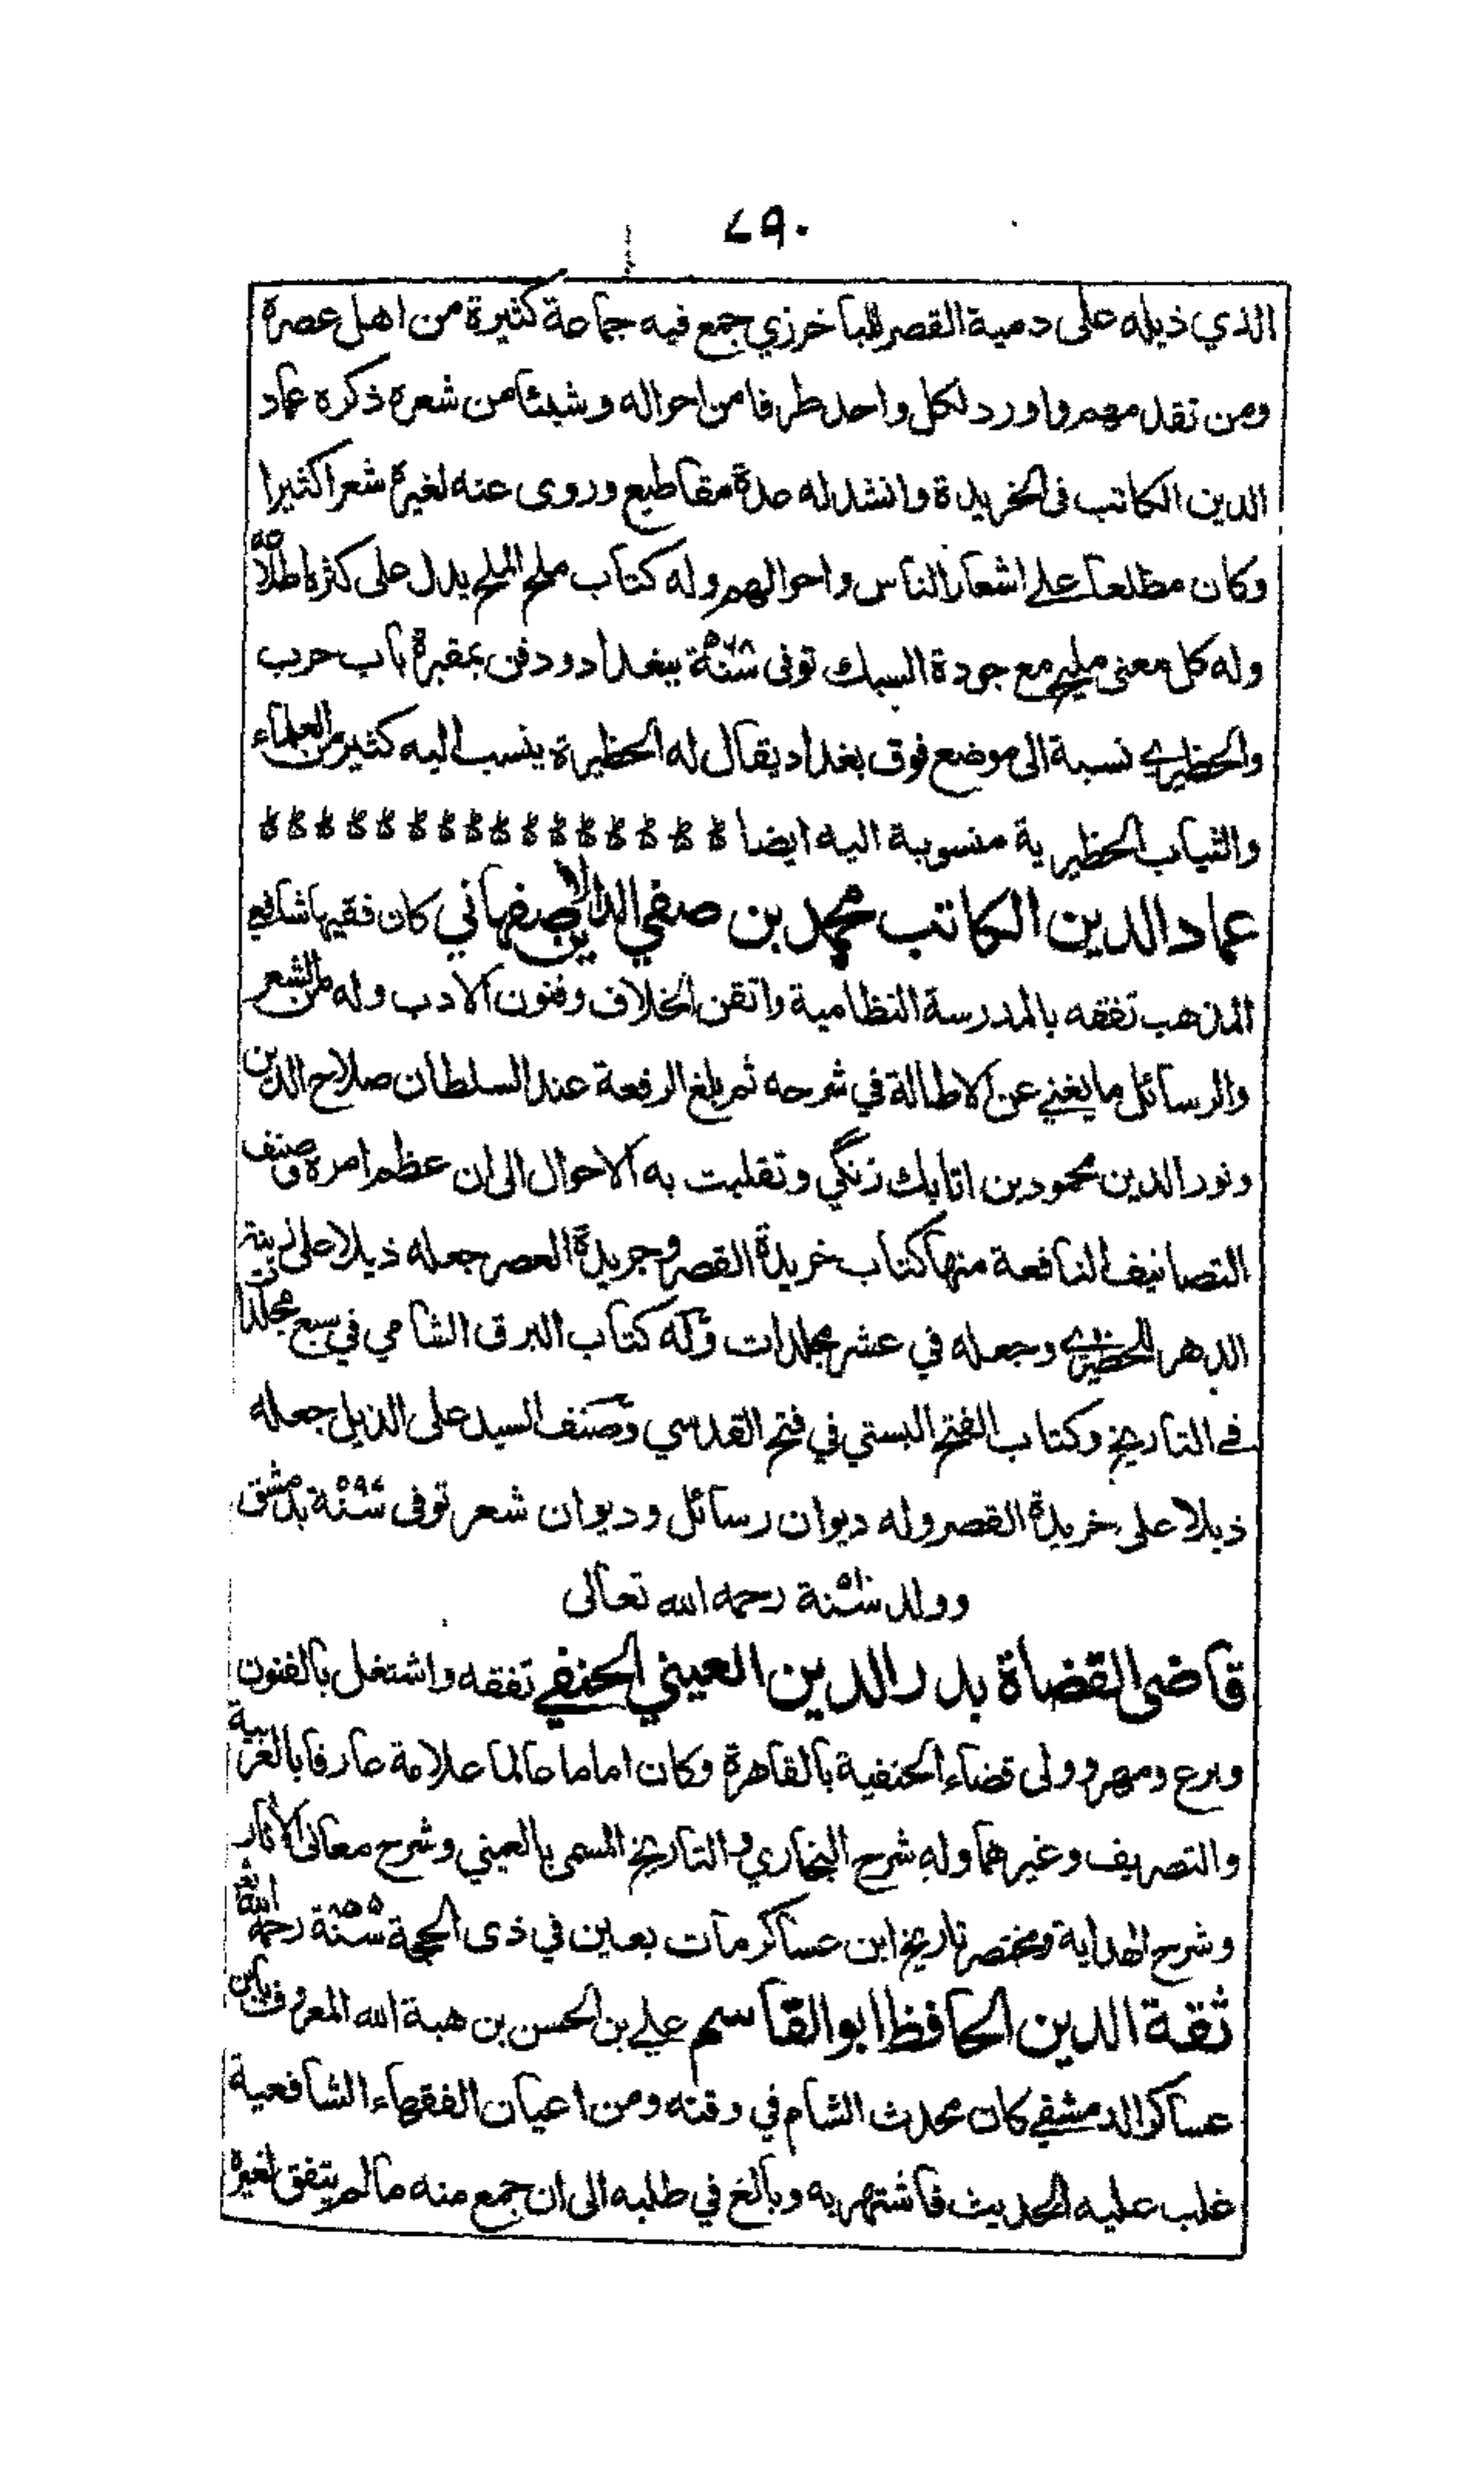 ٧٩٠
الذي ذيله على دمية القصر للباخرزي جمع فيه جماعة كثيرة من اهل عصره
ومن تقدمهم واورد لكل واحد طرفا من احواله وشيئا من شعره ذكره عماد
الدين الكاتب فى الخريدة وانشد له عدة مقاطيع وروى عنه لغيره شعرا كثيرا
وكان مطلعا على اشعار الناس واحوالهم وله كتاب ملح الملح يدل على كثرة اطلاعه
وله كل معنى مليح مع جودة السبك توفى سنة ٥٦٨ ببغداد ودفن بمقبرة باب حرب
والحظيري نسبة الى موضع فوق بغداد يقال له الحظيرة ينسب اليه كثير من العلماء
والثياب الحظيرية منسوبة اليه ايضا
عماد الدين الكاتب محمد بن صفي الدين الاصفهاني كان فقيها شافعي
المذهب تفقه بالمدرسة النظامية واتقن الخلاف وفنون الادب وله من الشعر
والرسائل ما يغني عن الاطالة في شرحه ثم بلغ الرفعة عند السلطان صلاح الدين
ونور الدين محمود بن اتابك زنگي وتقلبت به الاحوال الى ان عظم امره وصنف
التصانيف النافعة منها كتاب خريدة القصر وجريدة العصر جعله ذيلا على زينة
الدهر للحظيري وجعله في عشر مجلدات وله كتاب البرق الشامي في سبع مجلدات
في التاريخ وكتاب الفتح البستي في فتح القدسي وصنف السيد على الذيل جعله
ذيلا على خريدة القصر وله ديوان رسائل وديوان شعر توفى سنة ٥٩٧ بدمشق
وولد سنة رحمه الله تعالى
قاضى القضاة بدر الدين العيني الحنفي تفقه واشتغل بالفنون
وبرع ومهر وولى قضاء الحنفية بالقاهرة وكان اماما عالما علامة عارفا بالعربية
والتصريف وغيرهما وله شرح البخاري والتاريخ المسمى بالعيني وشرح معانى الاثار
وشرح الهداية ومختصر تاريخ ابن عساكر مات بعين في ذى الحجة سنة ٨٥٥ رحمه الله
ثقة الدين الحافظ ابو القاسم علي بن الحسن بن هبة الله المعروف بابن
عساكر الدمشقي كان محدث الشام في وقته ومن اعيان الفقهاء الشافعية
غلب عليه الحديث فاشتهر به وبالغ في طلبه الى ان جمع منه ما لم يتفق لغيره